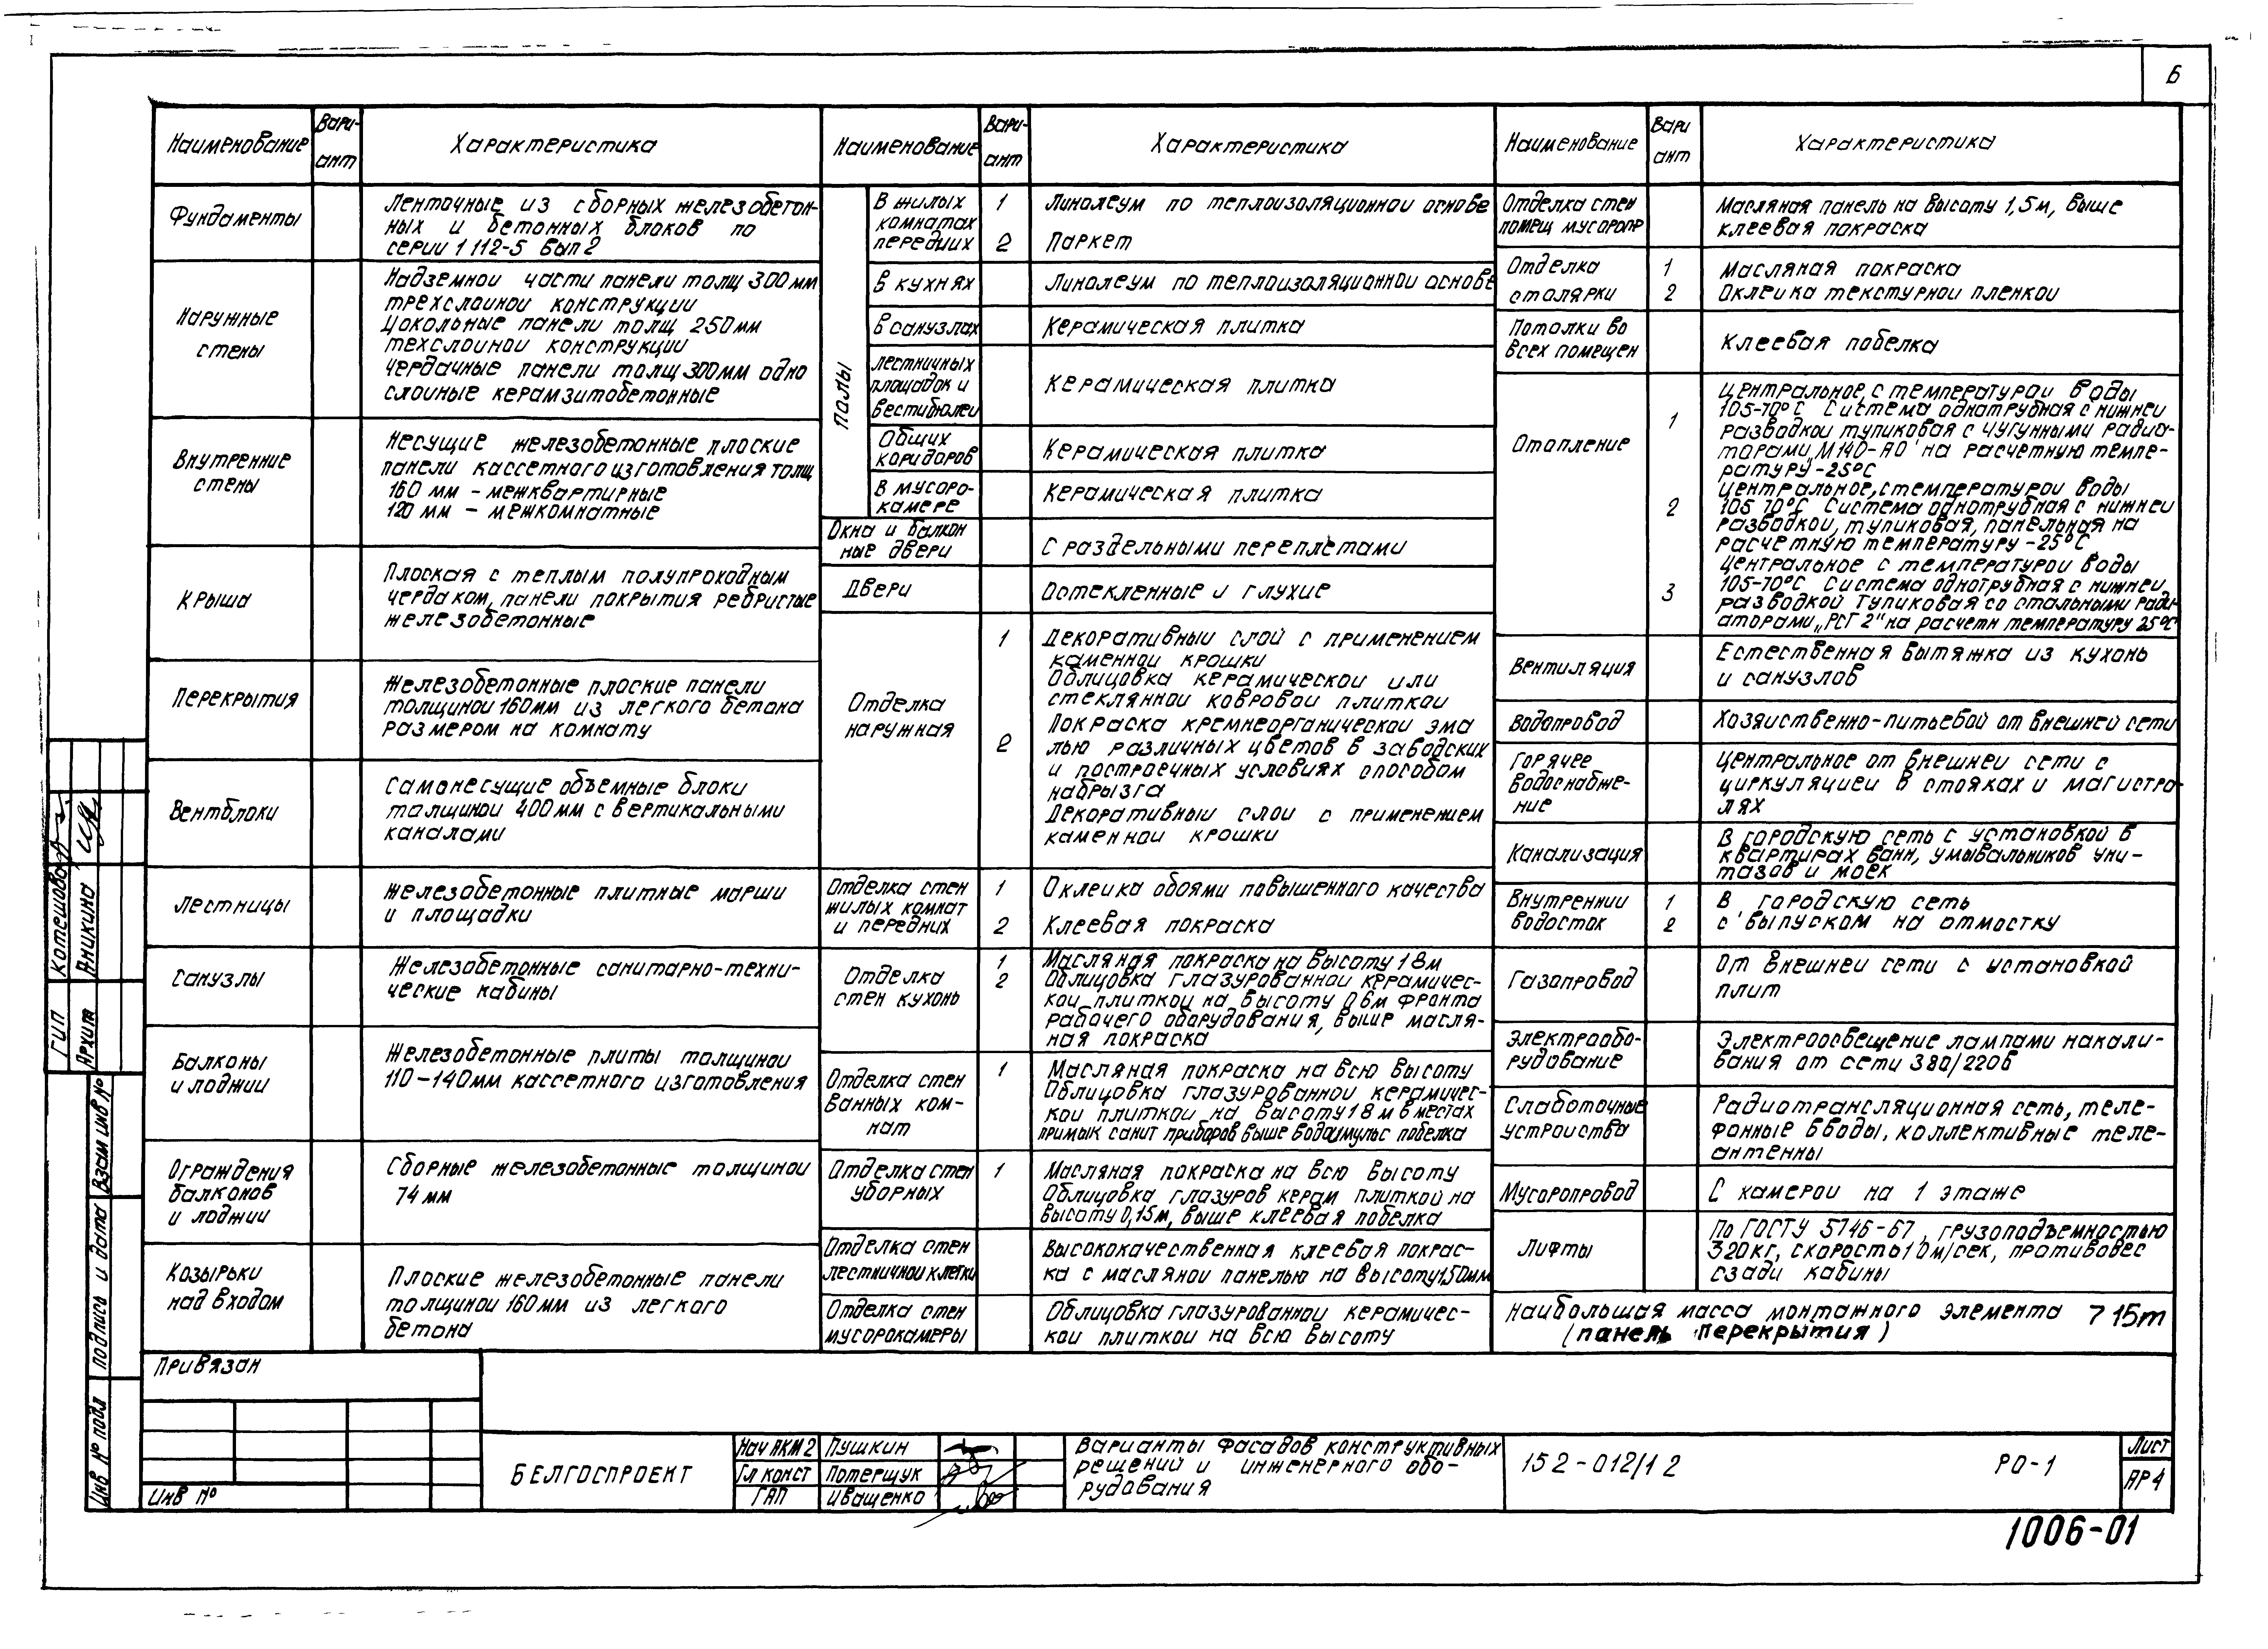 6
Наименование
Вари-
ант
Характеристика
Фундаменты
Ленточные из сборных железобетон-
ных и бетонных блоков по
серии 1 112-5 Вып 2
Наружные
стены
Надземной части панели толщ 300 мм
трехслойной конструкции
Цокольные панели толщ 250 мм
техслойной конструкции
Чердачные панели толщ 300мм одно
слойные керамзитобетонные
Внутренние
стены
Несущие железобетонные плоские
панели кассетного изготовления толщ
160 мм – межквартирные
120 мм – межкомнатные
Крыша
Плоская с теплым полупроходным
чердаком, панели покрытия ребристые
железобетонные
Перекрытия
Железобетонные плоские панели
толщиной 160мм из легкого бетона
размером на комнату
Вентблоки
Самонесущие объемные блоки
толщиной 400 мм с вертикальными
каналами
Лестницы
Железобетонные плитные марши
и площадки
Санузлы
Железобетонные санитарно-техни-
ческие кабины
Балконы
и лоджии
Железобетонные плиты толщиной
110-140мм кассетного изготовления
Ограждения
балконов
и лоджии
Сборные железобетонные толщиной
74 мм
Козырьки
над входом
Плоские железобетонные панели
толщиной 160 мм из легкого
бетона
Наименование
Вари-
ант
Характеристика
Полы
В жилых
комнатах
передних
1
Линолеум по теплоизоляционной основе
2
Паркет
в кухнях
Линолеум по теплоизоляционной основе
в санузлах
Керамическая плитка
лестничных
площадок и
вестибюлей
Керамическая плитка
Общих
коридоров
Керамическая плитка
В мусоро-
камере
Керамическая плитка
Окна и балкон
ные двери
С раздельными переплётами
Двери
Остекленные и глухие
Отделка
наружная
1
Декоративный слой с применением
каменной крошки
Облицовка керамической или
стеклянной ковровой плиткой
2
Покраска кремнеорганической эма
лью различных цветов в заводских
и построечных условиях способом
набрызга
Декоративный слой с применением
каменной крошки
Отделка стен
жилых комнат
и передних
1
Оклейка обоями повышенного качества
2
Клеевая покраска
Отделка
стен кухонь
1
Масляная покраска на высоту 1 8м
2
Облицовка глазурованной керамичес-
кой плиткой на высоту 0 6м фронта
рабочего оборудования, выше масля-
ная покраска
Отделка стен
ванных ком-
нат
1
Масляная покраска на всю высоту
Облицовка глазурованной керамичес-
кой плиткой на высоту 1 8 м в местах
примык санит приборов выше водоэмульс побелка
Отделка стен
уборных
1
Масляная покраска на всю высоту
Облицовка глазуров керам плиткой на
высоту 0,15м, выше клеевая побелка
Отделка стен
лестничной клетки
Высококачественная клеевая покрас-
ка с масляной панелью на высоту 1,50мм
Отделка стен
мусорокамеры
Облицовка глазурованной керамичес-
кой плиткой на всю высоту
Наименование
Вари
ант
Характеристика
Отделка стен
помещ мусоропр
Масляная панель на высоту 1,5м, выше
клеевая покраска
Отделка
столярки
1
Масляная покраска
2
Оклейка текстурной пленкой
Потолки во
всех помещен
Клеевая побелка
Отопление
1
Центральное, с температурой воды
105-70°С Система однотрубная с нижней
разводкой тупиковая с чугунными радиа-
торами „М140-АО" на расчетную темпе-
ратуру -25°С
2
Центральное, с температурой воды
105 70°С Система однотрубная с нижней
разводкой, тупиковая, панельная на
расчетную температуру -25°С
3
Центральное с температурой воды
105-70°С Система однотрубная с нижней
разводкой тупиковая со стальными ради
аторами „РСГ 2" на расчетн температуру 25°С
Вентиляция
Естественная вытяжка из кухонь
и санузлов
Водопровод
Хозяйственно-питьевой от внешней сети
Горячее
водоснабже-
ние
Центральное от внешней сети с
циркуляцией в стояках и магистра-
лях
Канализация
В городскую сеть с установкой в
квартирах ванн, умывальников уни-
тазов и моек
Внутренний
водосток
1
В городскую сеть
2
с выпуском на отмостку
Газопровод
От внешней сети с установкой
плит
Электрообо-
рудование
Электроосвещение лампами накали-
вания от сети 380/220в
Слаботочные
устройства
Радиотрансляционная сеть, теле-
фонные вводы, коллективные теле-
антенны
Мусоропровод
С камерой на 1 этаже
Лифты
По ГОСТу 5746-67, грузоподъемностью
320кг, скорость 1 0м/сек, противовес
сзади кабины
Наибольшая масса монтажного элемента 7 15т
(панель перекрытия)
ГИП
Котешовa
Архит
Аникина
Взам инв №
Подпись и дата
Инв № подл
Привязан
Инв №
БЕЛГОСПРОЕКТ
Нач АКМ 2
Пушкин
Гл конст
Потерщук
ГАП
Иващенко
Варианты фасадов конструктивных
решений и инженерного обо-
рудования
152-012/1 2
РО-1
Лист
АР 4
1006-01